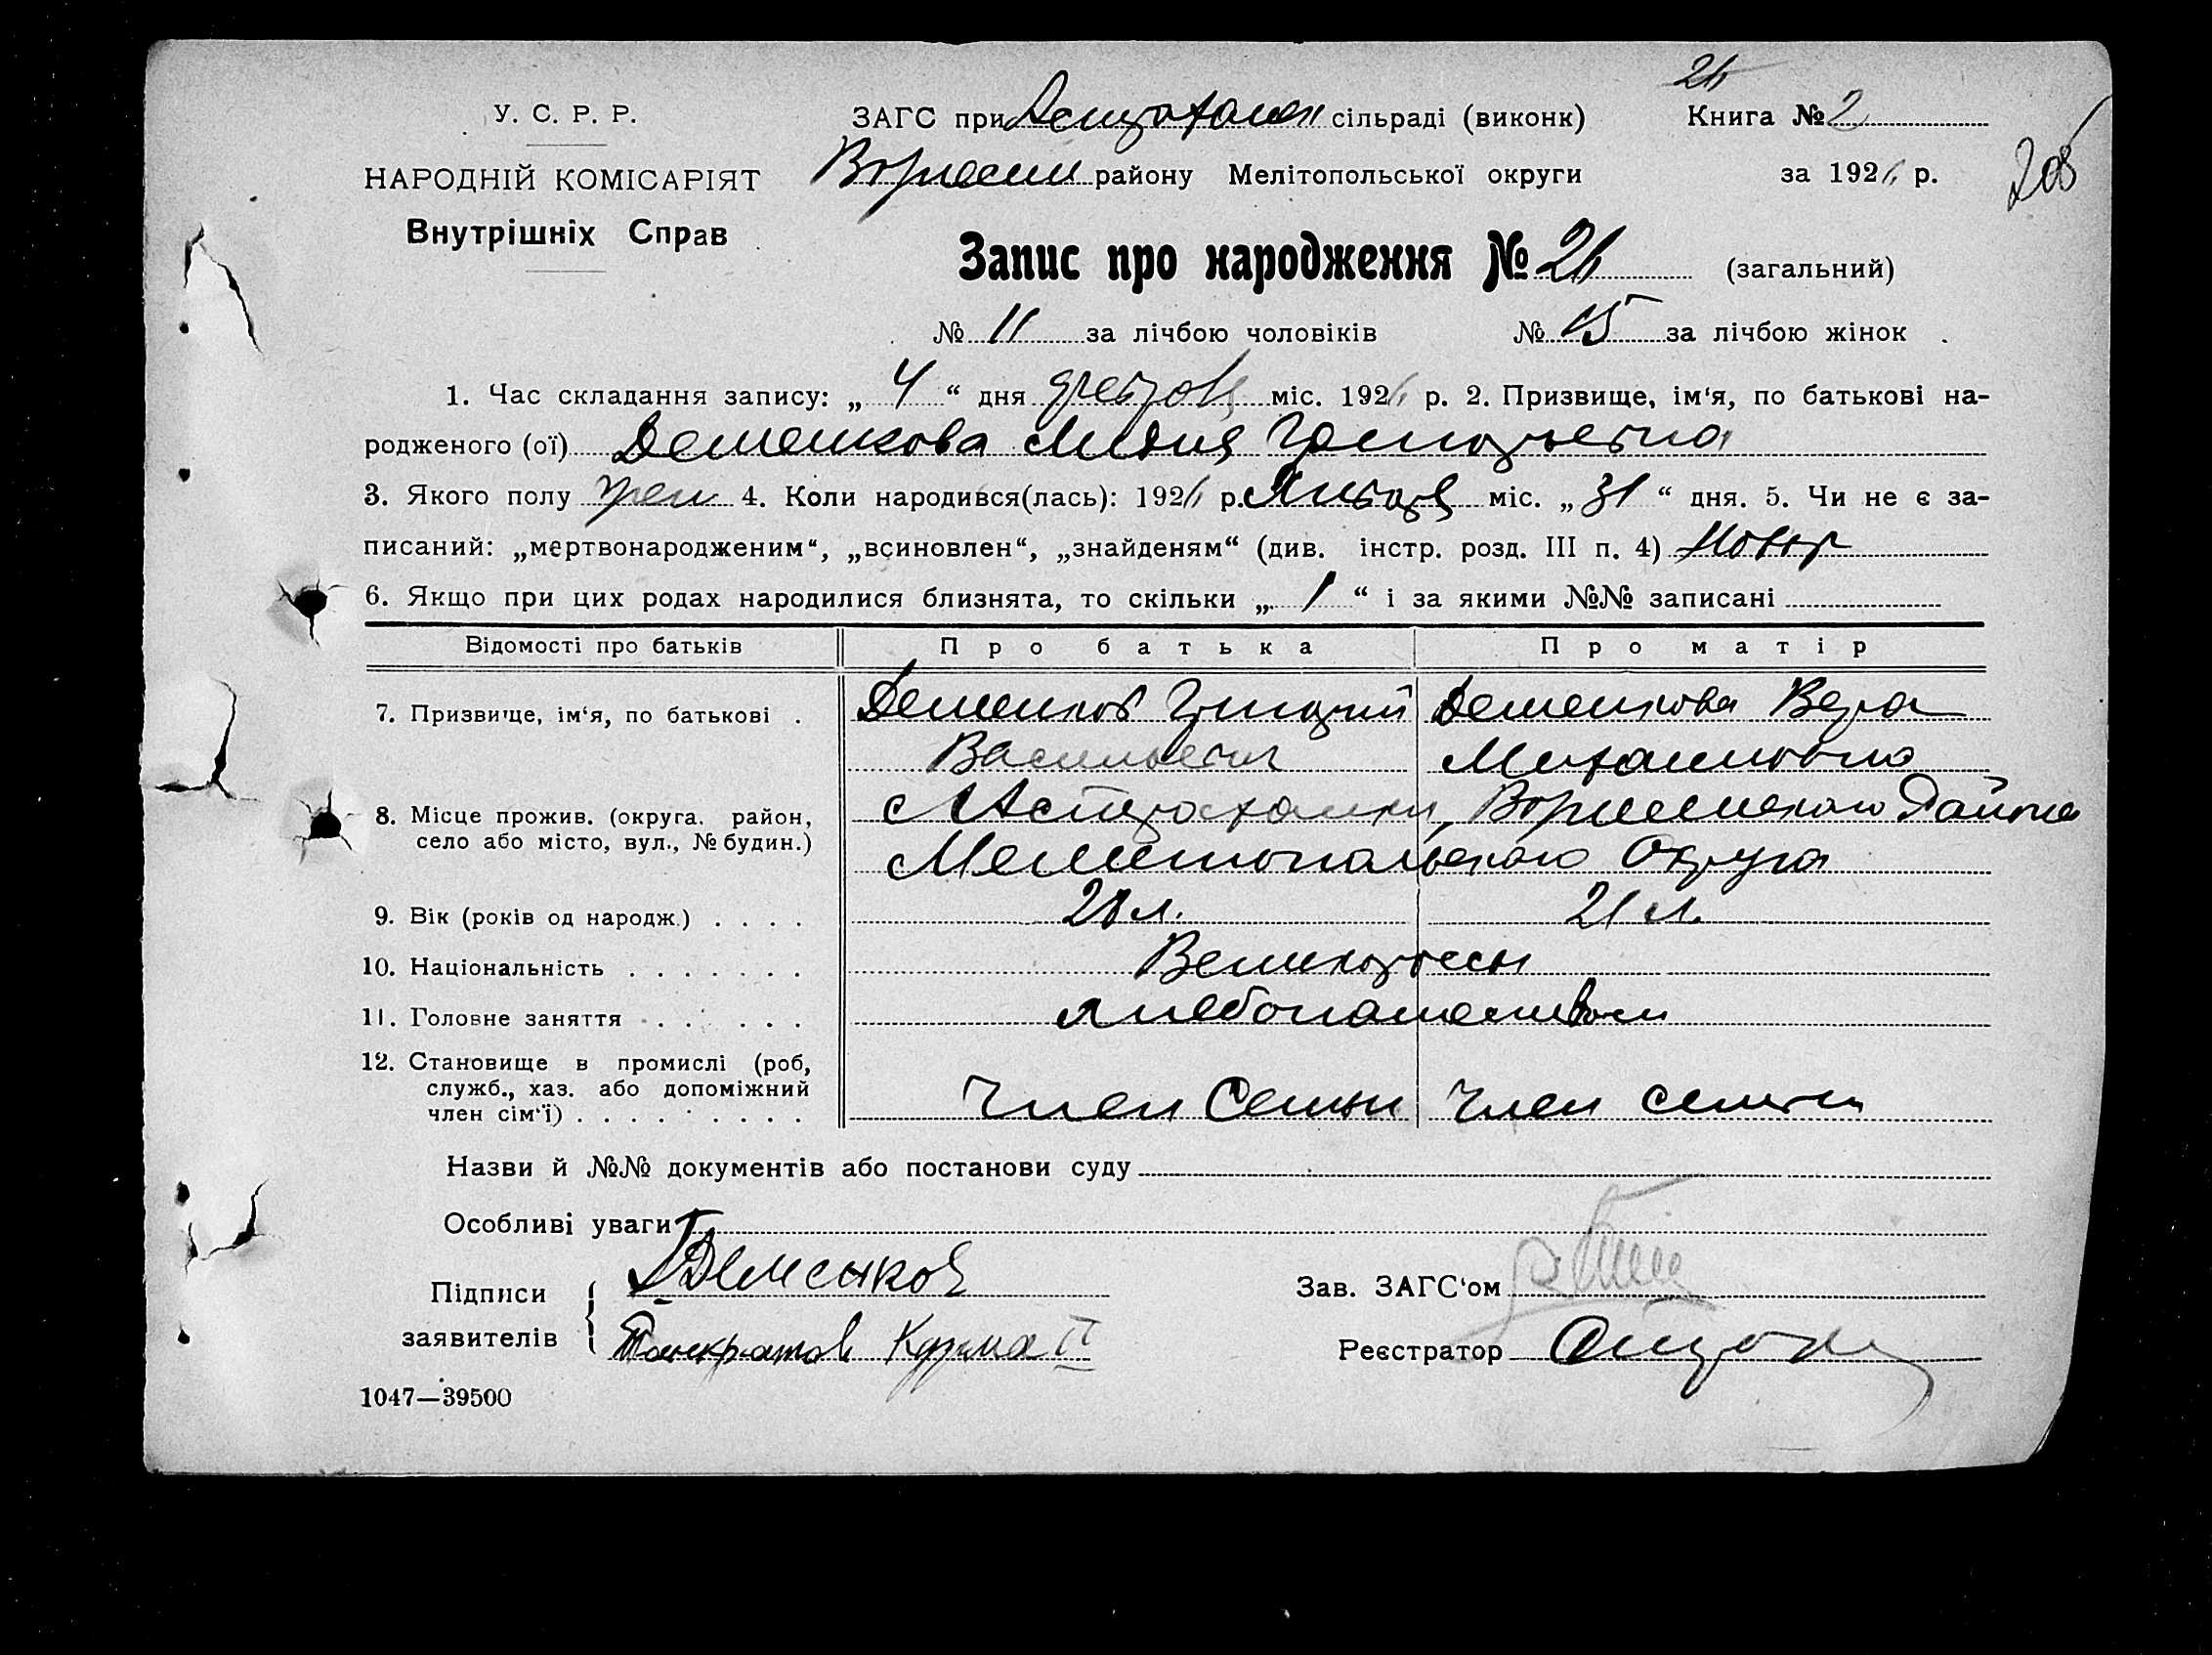 26
У. С. Р. Р.
ЗАГС при Астрахан сільраді (виконк)
Книга № 2
НАРОДНІЙ КОМІСАРІЯТ
району Мелітопольської округи
за 1926 р.
Внутрішніх Справ
Запис про народження № 26 (загальний)
№ 11 за лічбою чоловіків № 15 за лічбою жінок
1. Час складання запису: „ 4 “ дня февраля міс. 1926 р. 2. Призвище, ім‘я, по батькові на-
родженого (ої) Деменкова Лидия Григорьевна
3. Якого полу жен 4. Коли народився(лась): 1926 р. Января міс. „ 31 “ дня. 5. Чи не є за-
писаний: „мертвонародженим“, „всиновлен“, „знайденям“ (див. інстр. розд. III п. 4)
6. Якщо при цих родах народилися близнята, то скільки „ 1 “ і за якими №№ записані
Відомості про батьків Про батька Про матір
7. Призвище, ім‘я, по батькові . Деменков Григорий Деменкова Вера
Васильевич Михайловна
8. Місце прожив. (округа. район, с Астраханки, района
село або місто, вул., № будин.) Мелитопольского Округа
9. Вік (років од народж.) . . . . 28 л. 21 л.
10. Національність . . . . . . . Великороссы
11. Головне заняття . . . . . . хлебопашество
12. Становище в промислі (роб,
служб., хаз. або допоміжний
член сім‘ї) . . . . . . . . . Член Семьи Член семьи
Назви й №№ документів або постанови суду
Особливі уваги
Підписи Деменков
Зав. ЗАГС‘ом
заявителів Панкратов Кузма
Реєстратор
1047—39500